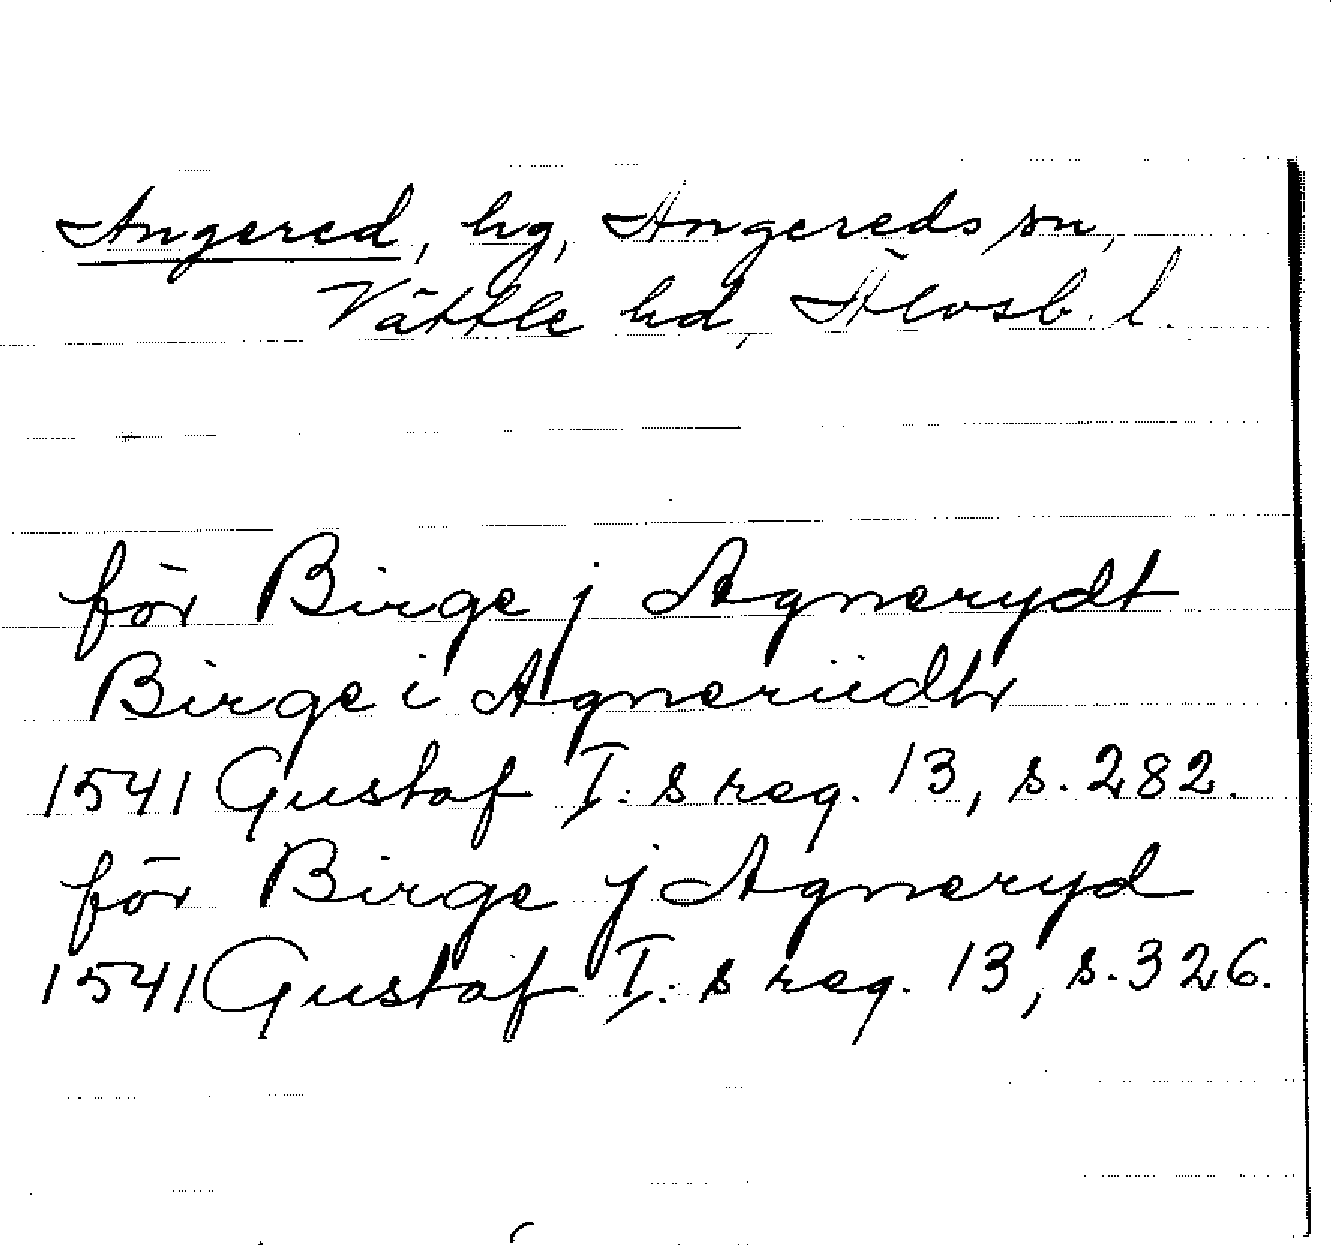 Angered, hg, Angereds sn,
Vättle hd, Älvsb. l.
för Birge j Agnerydt
Birge i Agneriidtr
1541 Gustaf I:s reg. 13, s. 282.
för Birge j Agneryd
1541 Gustaf I:s reg. 13, s. 326.